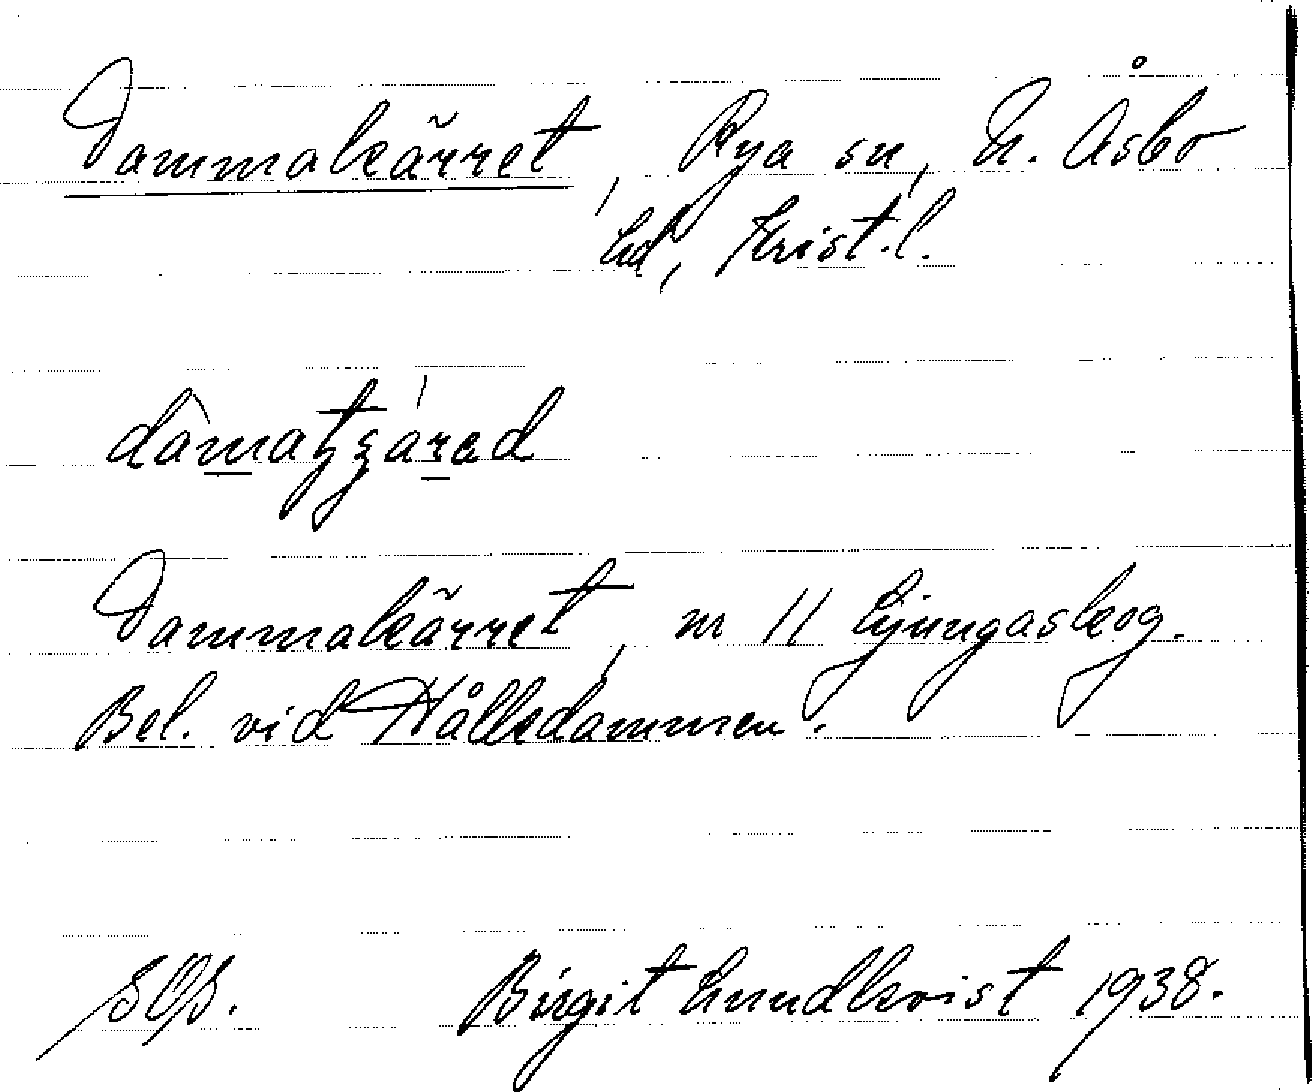 Dammakärret, Rya sn, N. Åsbo
hd, Krist. l.
Dammakärret, nr 11 Ljungaskog.
Bel. vid Hålledammen.
Birgit Lundkvist 1938.